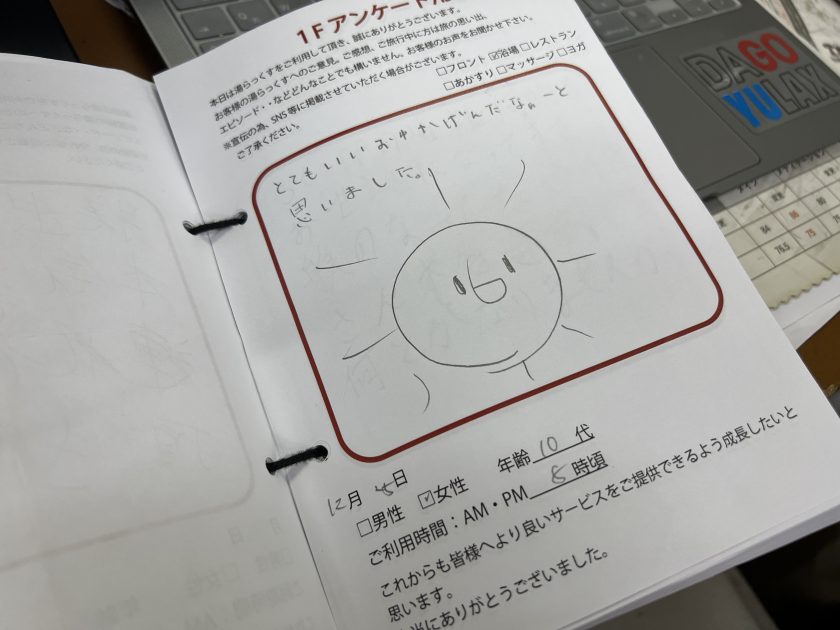 1Fアンケート用
本日は湯らっくすをご利用して頂き、誠にありがとうございます。
お客様の湯らっくすへのご意見。ご感想、ご旅行中に方は旅の思い出、
エピソード・・などどんなことでも構いません。お客様のお声をお聞かせ下さい。
※宣伝の為、SNS等に掲載させていただく場合がございます。
ご了承ください。
□フロント ☑浴場 □レストラン
□あかすり □マッサージ □ヨガ
とてもいいおゆかげんだなぁーと
思いました。
12月 日
□男性 ☑女性 年齢 10 代
ご利用時間：AM・PM 8 時頃
これからも皆様へより良いサービスをご提供できるよう成長したいと
思います。
当にありがとうございました。
DAGO
YULAX
84
86
80
76.5
75